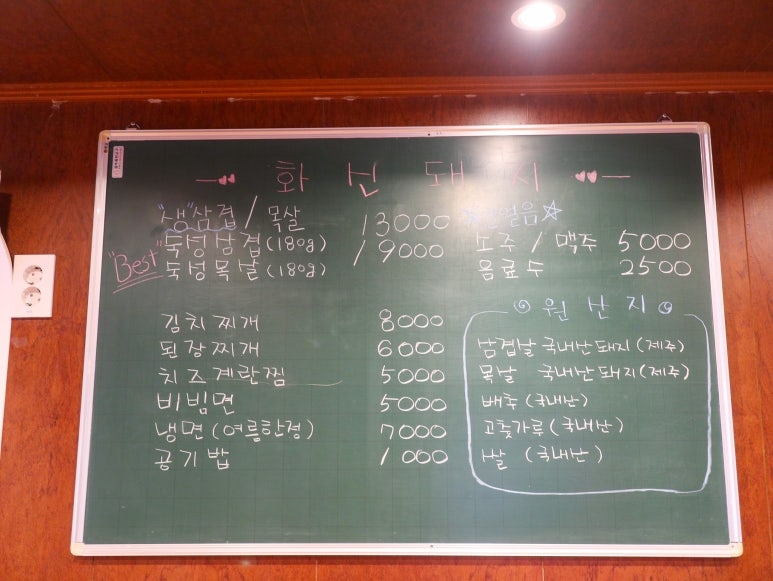 화 신 돼 지
"생"삼겹 / 목살 13000
숙성삼겹(180g) 19000
"Best"
숙성목살(180g)
김치찌개 8000
된장찌개 6000
치즈계란찜 5000
비빔면 5000
냉면(여름한정) 7000
공기밥 1000
얼음
소주 / 맥주 5000
음료수 2500
원산지
삼겹살 국내산돼지(제주)
목살 국내산돼지(제주)
배추(국내산)
고춧가루(국내산)
쌀 (국내산)